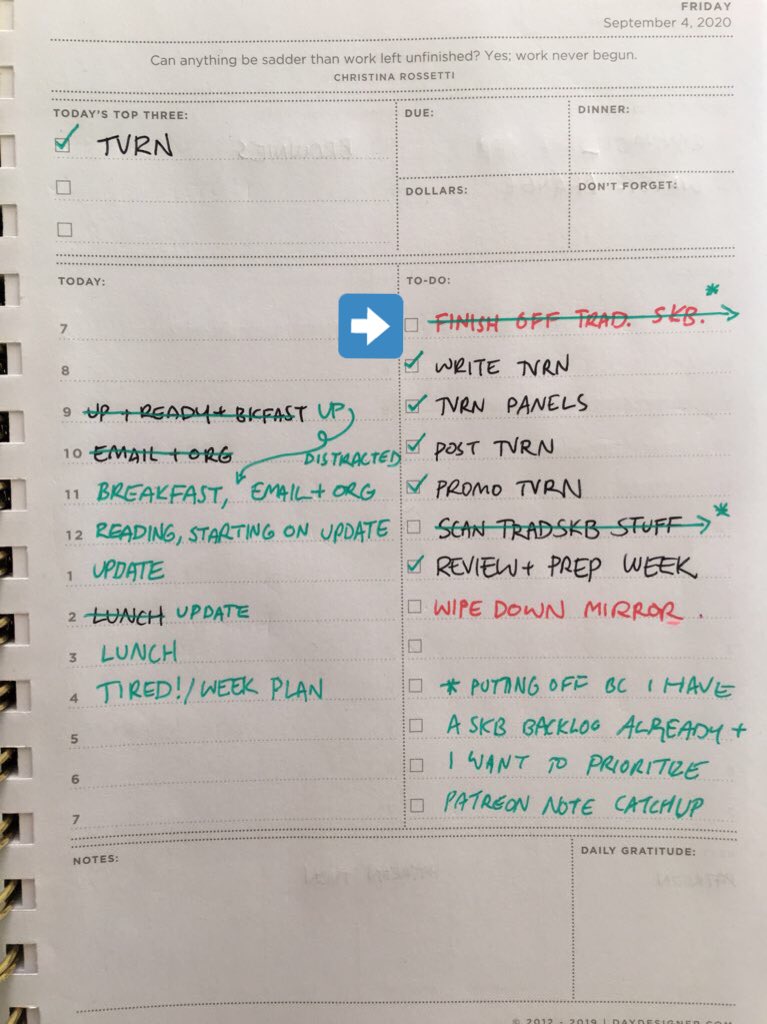 FRIDAY
September 4, 2020
Can anything be sadder than work left unfinished? Yes; work never begun.
CHRISTINA ROSSETTI
TODAY'S TOP THREE:
TVRN
DUE:
DINNER:
DOLLARS:
DON'T FORGET:
TODAY:
7
8
9 UP + READY + BKFAST UP
10 EMAIL + ORG
DISTRACTED
11 BREAKFAST, EMAIL + ORG
12 READING, STARTING ON UPDATE
1 UPDATE
2 LUNCH UPDATE
3 LUNCH
4 TIRED! / WEEK PLAN
5
6
7
TO-DO:
FINISH OFF TRAD. SKB. *
WRITE TVRN
TVRN PANELS
POST TVRN
PROMO TVRN
SCAN TRADSKB STUFF *
REVIEW + PREP WEEK
WIPE DOWN MIRROR.
* PUTTING OFF BC I HAVE
A SKB BACKLOG ALREADY +
I WANT TO PRIORITIZE
PATREON NOTE CATCHUP
NOTES:
DAILY GRATITUDE:
© 2012 - 2019 | DAYDESIGNER.COM